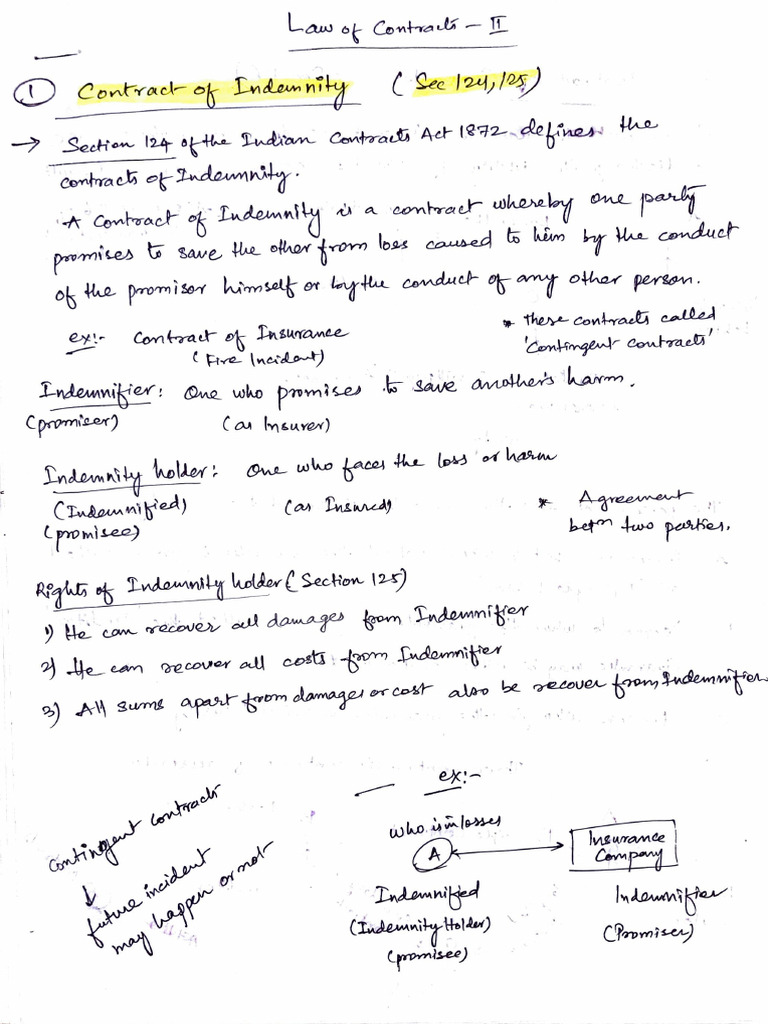 Law of Contracts - II
① Contract of Indemnity (Sec 124, 125)
→ Section 124 of the Indian Contracts Act 1872 defines the
contracts of Indemnity.
A Contract of Indemnity is a contract whereby one party
promises to save the other from loss caused to him by the conduct
of the promisor himself or by the conduct of any other person.
ex:- Contract of Insurance
(Fire Incident)
* These contracts called
'Contingent contracts'
Indemnifier: One who promises to save another's harm.
(promiser) (as Insurer)
Indemnity holder: One who faces the loss or harm
(Indemnified) (as Insured)
(promisee)
* Agreement
betⁿ two parties.
Rights of Indemnity holder (Section 125)
1) He can recover all damages from Indemnifier
2) He can recover all costs from Indemnifier
3) All sums apart from damages or cost also be recover from Indemnifier
contingent contracts
↓
future incident
may happen or not
ex:-
who is in losses
A ↔ Insurance
Company
Indemnified
(Indemnity Holder)
(promisee)
Indemnifier
(Promiser)